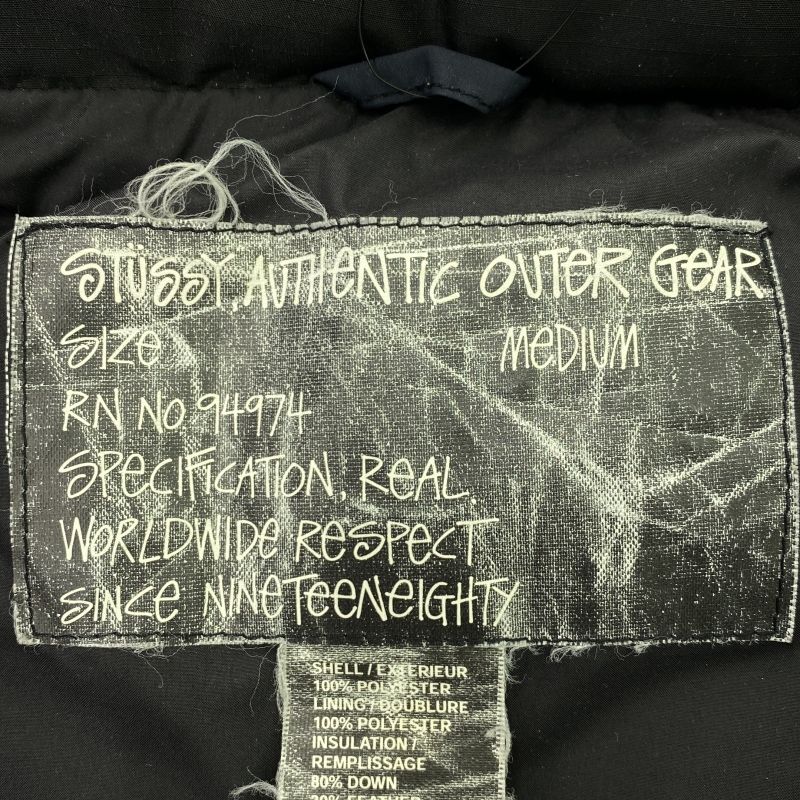 STÜSSY, AUTHENTIC OUTER GEAR
SIZE MEDIUM
RN NO. 94974
SPECIFICATION. REAL.
WORLDWIDE RESPECT
SINCE NINETEENEIGHTY
SHELL / EXTERIEUR
100% POLYESTER
LINING / DOUBLURE
100% POLYESTER
INSULATION /
REMPLISSAGE
80% DOWN
20% FEATHER